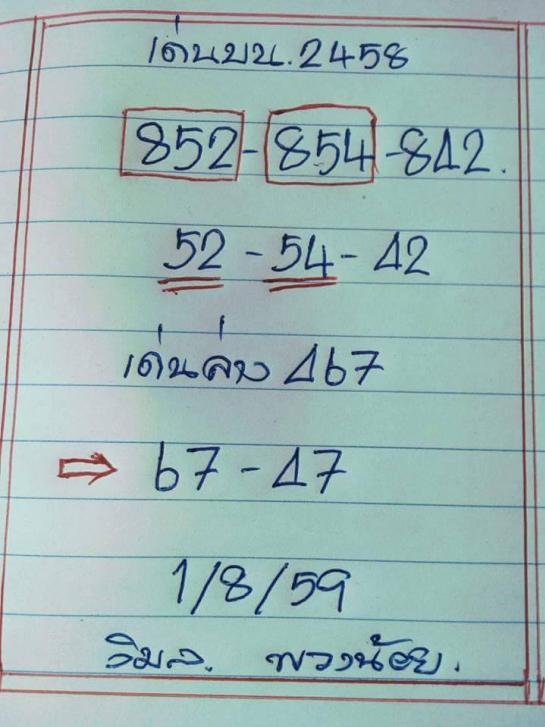 เด่นบน.2458
852-854-842.
52-54-42
เด่นล่าง 467
67-47
1/8/59
วิมล. พวงน้อย.